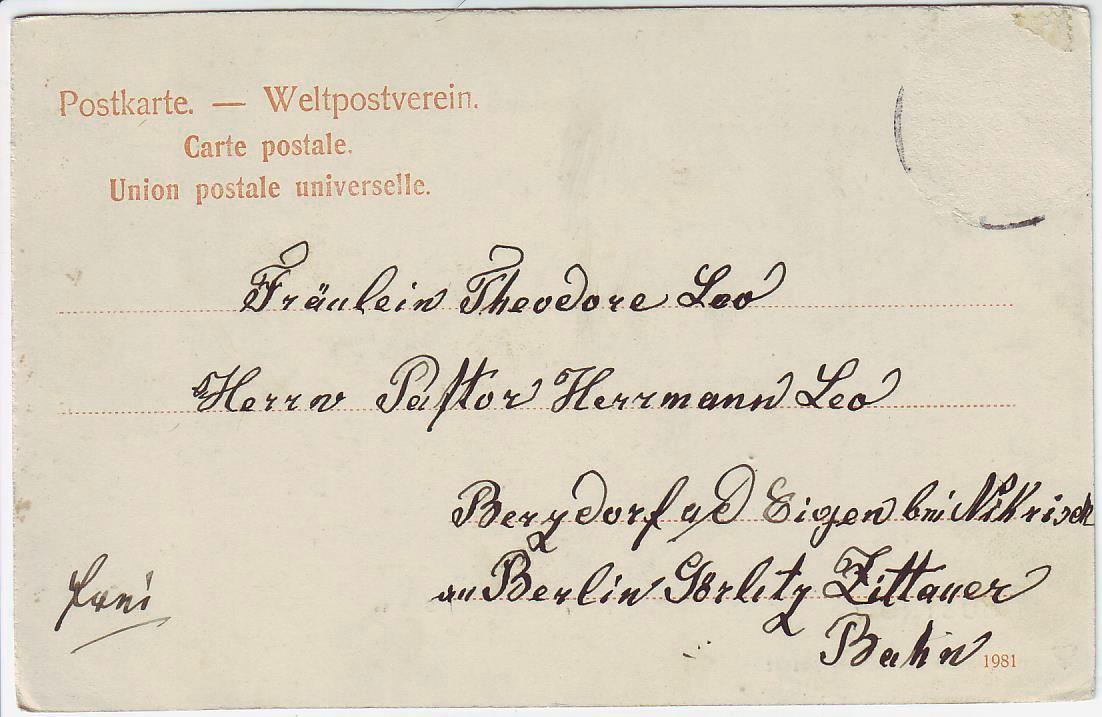 Postkarte. — Weltpostverein.
Carte postale.
Union postale universelle.
Fräulein Theodore Leo
Herrn Pastor Herrmann Leo
Berzdorf a/d Eigen bei Nikrisch
frei
an Berlin Görlitz Zittauer
Bahn 1981